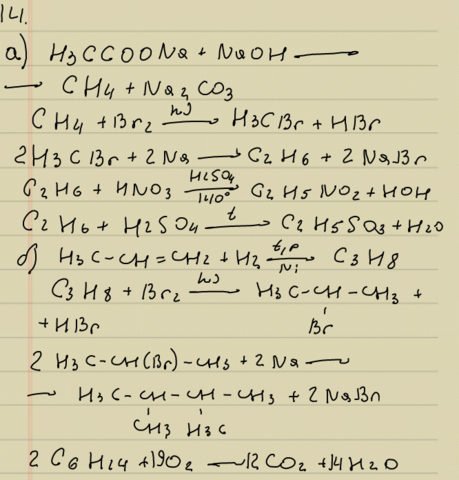 14.
а) H3CCOONa + NaOH ⟶
⟶ CH4 + Na2CO3
CH4 + Br2 —hν→ H3CBr + HBr
2H3CBr + 2Na ⟶ C2H6 + 2NaBr
C2H6 + HNO3 —H2SO4, 140°→ C2H5NO2 + HOH
C2H6 + H2SO4 —t→ C2H5SO3 + H2O
б) H3C-CH=CH2 + H2 —t,P, Ni→ C3H8
C3H8 + Br2 —hν→ H3C-CH-CH3 +
+ HBr Br
2 H3C-CH(Br)-CH3 + 2Na ⟶
⟶ H3C-CH-CH-CH3 + 2NaBr
CH3 H3C
2C6H14 + 19O2 ⟶ 12CO2 + 14H2O